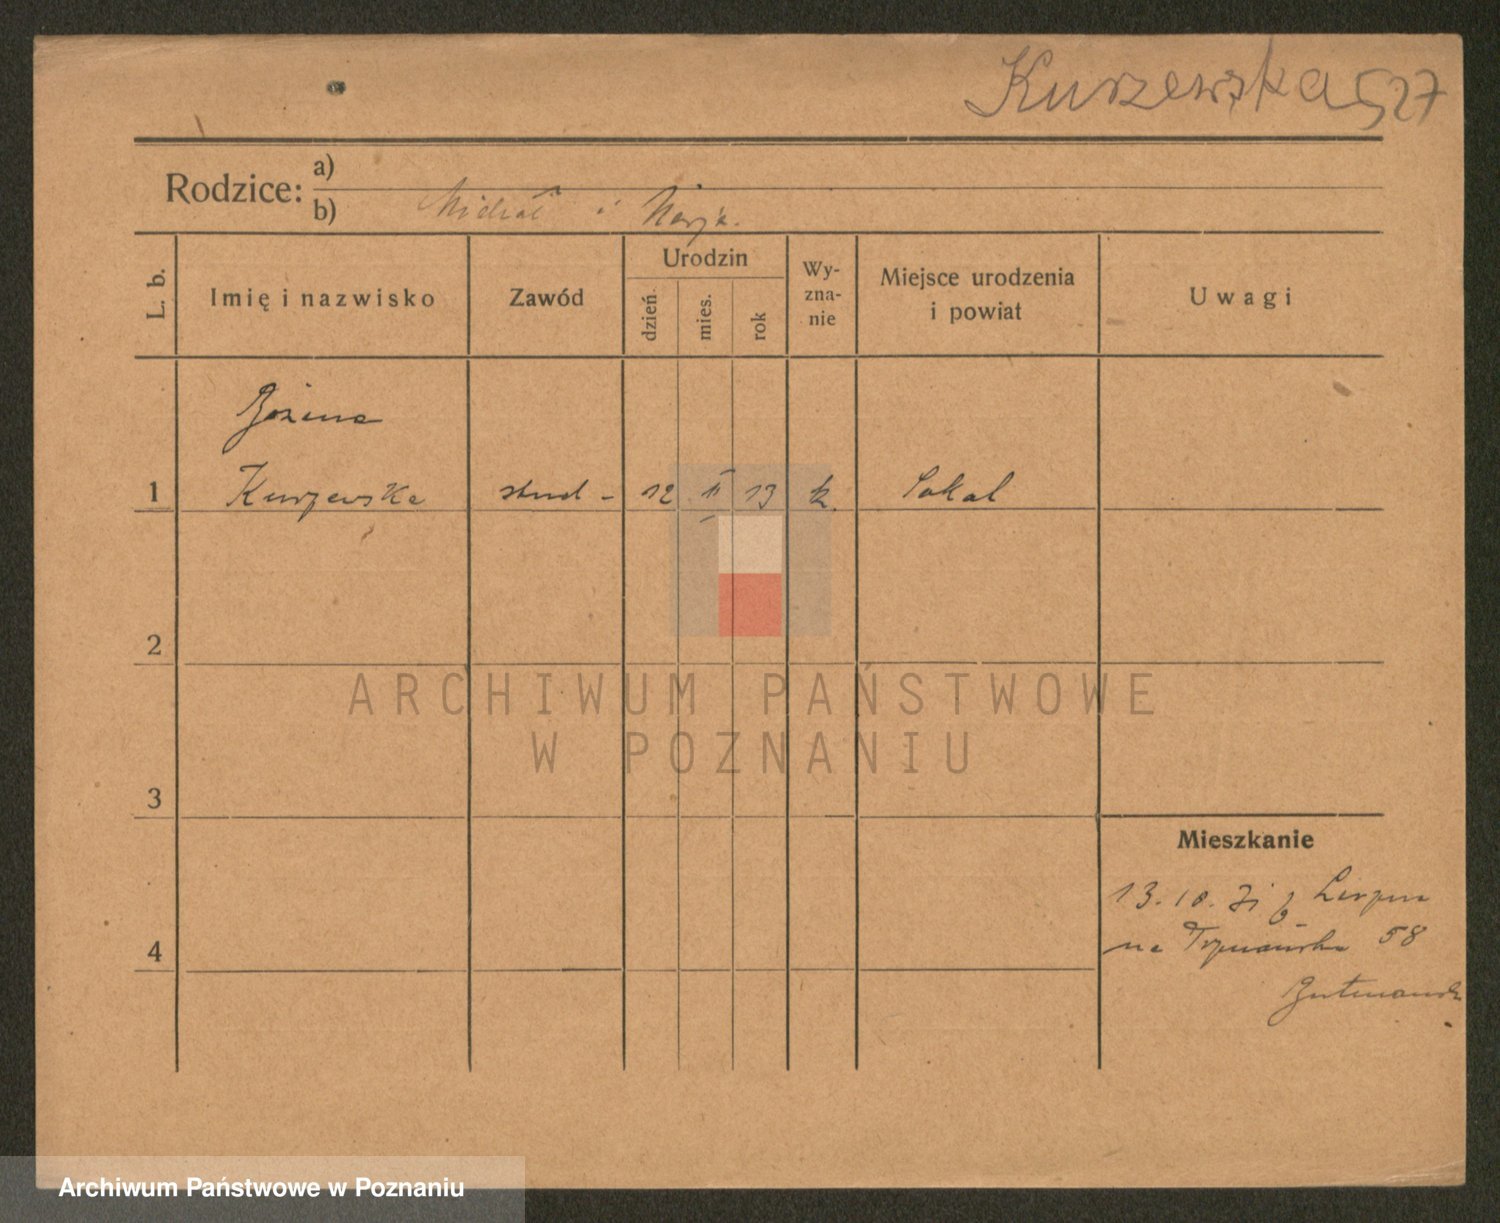 Kurzewska 527
Rodzice: a)
b) Michał i Marja.
L. b.
Imię i nazwisko
Zawód
Urodzin
dzień
mies.
rok
Wy-
zna-
nie
Miejsce urodzenia
i powiat
Uwagi
Bożena
1 Kurzewska stud - 12 II 13 k. Sokal
2
ARCHIWUM PAŃSTWOWE
W POZNANIU
3
Mieszkanie
13. 10. 31 z
na 58
4
Archiwum Państwowe w Poznaniu